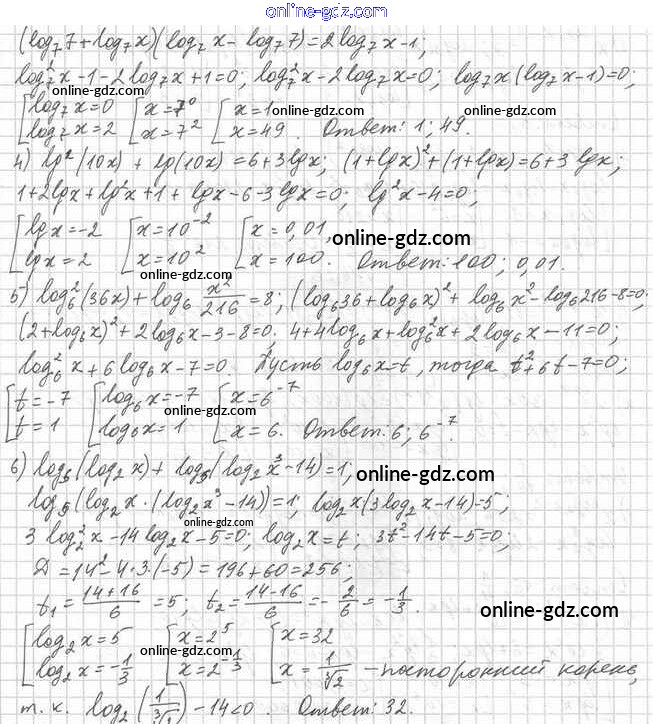 online-gdz.com
(log₇7+log₇x)(log₇x-log₇7)=2log₇x-1;
log₇²x-1-2log₇x+1=0; log₇²x-2log₇x=0; log₇x(log₇x-1)=0;
online-gdz.com
[log₇x=0 [x=7⁰ [x=1 online-gdz.com online-gdz.com
[log₇x=2 [x=7² [x=49. Ответ: 1; 49.
4) lg²(10x)+lg(10x)=6+3lgx; (1+lgx)²+(1+lgx)=6+3lgx;
1+2lgx+lg²x+1+lgx-6-3lgx=0; lg²x-4=0;
[lgx=-2 [x=10⁻² [x=0,01, online-gdz.com
[lgx=2 [x=10² [x=100. Ответ: 100; 0,01.
online-gdz.com
5) log₆²(36x)+log₆ x²/216=8; (log₆36+log₆x)²+log₆x²-log₆216-8=0;
(2+log₆x)²+2log₆x-3-8=0; 4+4log₆x+log₆²x+2log₆x-11=0;
log₆²x+6log₆x-7=0. Пусть log₆x=t, тогда t²+6t-7=0;
online-gdz.com
[t=-7 [log₆x=-7 [x=6⁻⁷ online-gdz.com
[t=1 [log₆x=1 [x=6. Ответ: 6; 6⁻⁷.
6) log₅(log₂x)+log₅(log₂x³-14)=1; online-gdz.com
log₅(log₂x·(log₂x³-14))=1; log₂x(3log₂x-14)=5;
online-gdz.com
3log₂²x-14log₂x-5=0; log₂x=t; 3t²-14t-5=0;
D=14²-4·3·(-5)=196+60=256;
t₁=(14+16)/6=5; t₂=(14-16)/6=-2/6=-1/3. online-gdz.com
[log₂x=5 [x=2⁵ [x=32
online-gdz.com
[log₂x=-1/3 [x=2^(-1/3) [x=1/∛2 - посторонний корень,
т.к. log₂(1/∛2)-14<0. Ответ: 32.